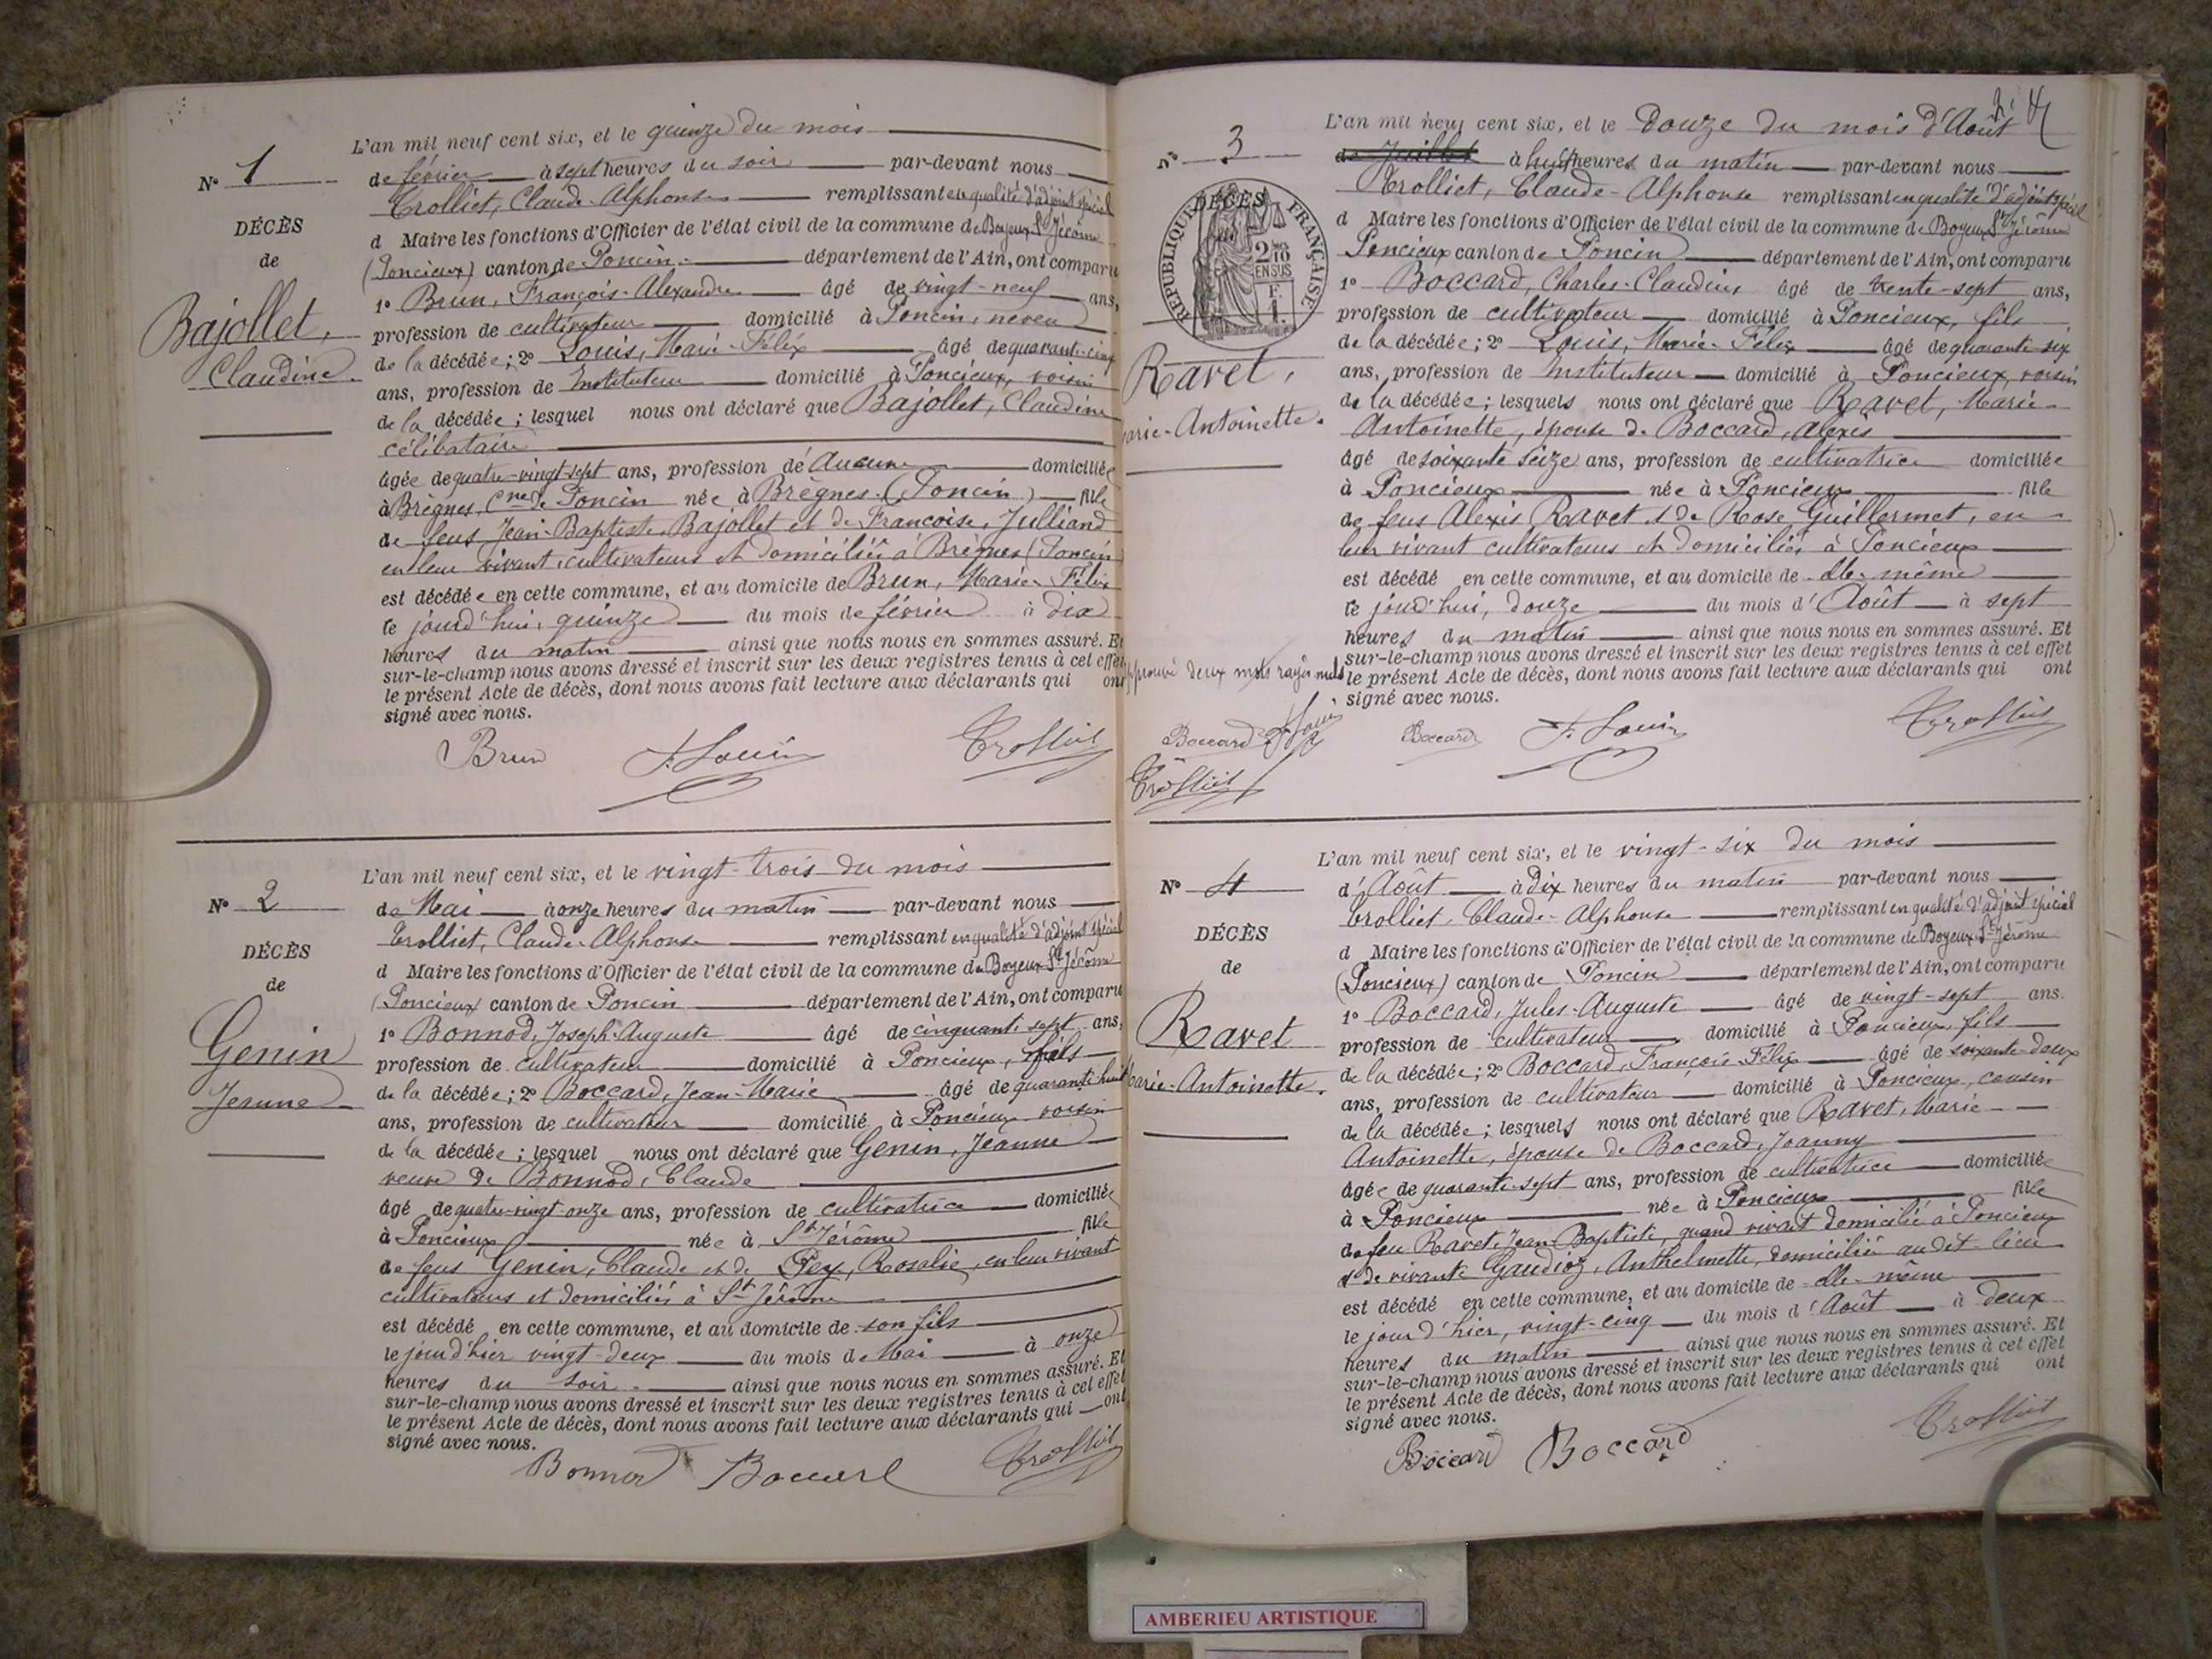 N° 1
DÉCÈS
de
Bajollet,
Claudine.
L'an mil neuf cent six, et le quinze du mois
de février à sept heures du soir par-devant nous
Trolliet, Claude-Alphonse remplissant en qualité d'adjoint spécial
d Maire les fonctions d'Officier de l'état civil de la commune de Boyeux St Jérôme
(Poncieux) canton de Poncin département de l'Ain, ont comparu
1° Brun, François-Alexandre âgé de vingt-neuf ans,
profession de cultivateur domicilié à Poncin, neveu
de la décédée; 2° Louis, Marie-Félix âgé de quarante-cinq
ans, profession de Instituteur domicilié à Poncieux, voisin
de la décédée; lesquel nous ont déclaré que Bajollet, Claudine
célibataire
âgée de quatre-vingt-sept ans, profession de Aucune domiciliée
à Brègnes, Cne de Poncin née à Brègnes (Poncin) fille
de feus Jean-Baptiste Bajollet et de Francoise, Julliand
en leur vivant cultivateurs et domiciliés à Brègnes (Poncin
est décédée en cette commune, et au domicile de Brun, Marie-Félix
le jourd'hui, quinze du mois de février à dix
heures du matin ainsi que nous nous en sommes assuré. Et
sur-le-champ nous avons dressé et inscrit sur les deux registres tenus à cet effet
le présent Acte de décès, dont nous avons fait lecture aux déclarants qui ont
signé avec nous.
Brun F. Louis Trolliet
N° 2
DÉCÈS
de
Genin
Jeanne
L'an mil neuf cent six, et le vingt-trois du mois
de Mai à onze heures du matin par-devant nous
Trolliet, Claude-Alphonse remplissant en qualité d'adjoint spécial
d Maire les fonctions d'Officier de l'état civil de la commune de Boyeux St Jérôme
(Poncieux) canton de Poncin département de l'Ain, ont comparu
1° Bonnod, Joseph-Auguste âgé de cinquante sept ans,
profession de cultivateur domicilié à Poncieux, fils
de la décédée; 2° Boccard, Jean-Marie âgé de quarante huit
ans, profession de cultivateur domicilié à Poncieux voisin
de la décédée; lesquel nous ont déclaré que Genin, Jeanne
veuve de Bonnod, Claude
âgé de quatre-vingt-onze ans, profession de cultivatrice domiciliée
à Poncieux née à St Jérôme fille
de feus Genin, Claude et de Pey, Rosalie, en leur vivant
cultivateurs et domiciliés à St Jérôme
est décédé en cette commune, et au domicile de son fils
le jour d'hier vingt-deux du mois de Mai à onze
heures du soir ainsi que nous nous en sommes assuré. Et
sur-le-champ nous avons dressé et inscrit sur les deux registres tenus à cet effet
le présent Acte de décès, dont nous avons fait lecture aux déclarants qui ont
signé avec nous.
Bonnod Boccard Trolliet
N° 3
DÉCÈS
RÉPUBLIQUE FRANÇAISE
2/10 EN SUS
F. 1.
Ravet,
arie-Antoinette.
L'an mil neuf cent six, et le Douze du mois d'Août
de Juillet à huit heures du matin par-devant nous
Trolliet, Claude-Alphonse remplissant en qualité d'adjoint spécial
d Maire les fonctions d'Officier de l'état civil de la commune de Boyeux St Jérôme
Poncieux canton de Poncin département de l'Ain, ont comparu
1° Boccard, Charles-Claudius âgé de trente-sept ans,
profession de cultivateur domicilié à Poncieux, fils
de la décédée; 2° Louis, Marie-Félix âgé de quarante six
ans, profession de Instituteur domicilié à Poncieux, voisin
de la décédée; lesquels nous ont déclaré que Ravet, Marie-
Antoinette, épouse de Boccard, Alexis
âgé de soixante seize ans, profession de cultivatrice domiciliée
à Poncieux née à Poncieux fille
de feus Alexis Ravet et de Rose Guillermet, en
leur vivant cultivateurs et domiciliés à Poncieux
est décédé en cette commune, et au domicile de elle-même
le jourd'hui, douze du mois d'Août à sept
heures du matin ainsi que nous nous en sommes assuré. Et
sur-le-champ nous avons dressé et inscrit sur les deux registres tenus à cet effet
le présent Acte de décès, dont nous avons fait lecture aux déclarants qui ont
signé avec nous.
pprouvé deux mots rayés nuls
Boccard F. Louis
Trolliet
Boccard F. Louis Trolliet
N° 4
DÉCÈS
de
Ravet
arie-Antoinette.
L'an mil neuf cent six, et le vingt-six du mois
d'Août à Dix heures du matin par-devant nous
Trolliet, Claude-Alphonse remplissant en qualité d'adjoint spécial
d Maire les fonctions d'Officier de l'état civil de la commune de Boyeux St Jérôme
(Poncieux) canton de Poncin département de l'Ain, ont comparu
1° Boccard, Jules-Auguste âgé de vingt-sept ans.
profession de cultivateur domicilié à Poncieux, fils
de la décédée; 2° Boccard, François-Félix âgé de soixante-deux
ans, profession de cultivateur domicilié à Poncieux, cousin
de la décédée; lesquels nous ont déclaré que Ravet, Marie-
Antoinette, épouse de Boccard, Joanny
âgée de quarante-sept ans, profession de cultivatrice domiciliée
à Poncieux née à Poncieux fille
de feu Ravet, Jean-Baptiste, quand vivait domicilié à Poncieux
et de vivante Gaudioz, Anthelmette, domiciliée au dit lieu
est décédé en cette commune, et au domicile de elle-même
le jour d'hier, vingt-cinq du mois d'Août à deux
heures du matin ainsi que nous nous en sommes assuré. Et
sur-le-champ nous avons dressé et inscrit sur les deux registres tenus à cet effet
le présent Acte de décès, dont nous avons fait lecture aux déclarants qui ont
signé avec nous.
Boccard Boccard Trolliet
AMBERIEU ARTISTIQUE